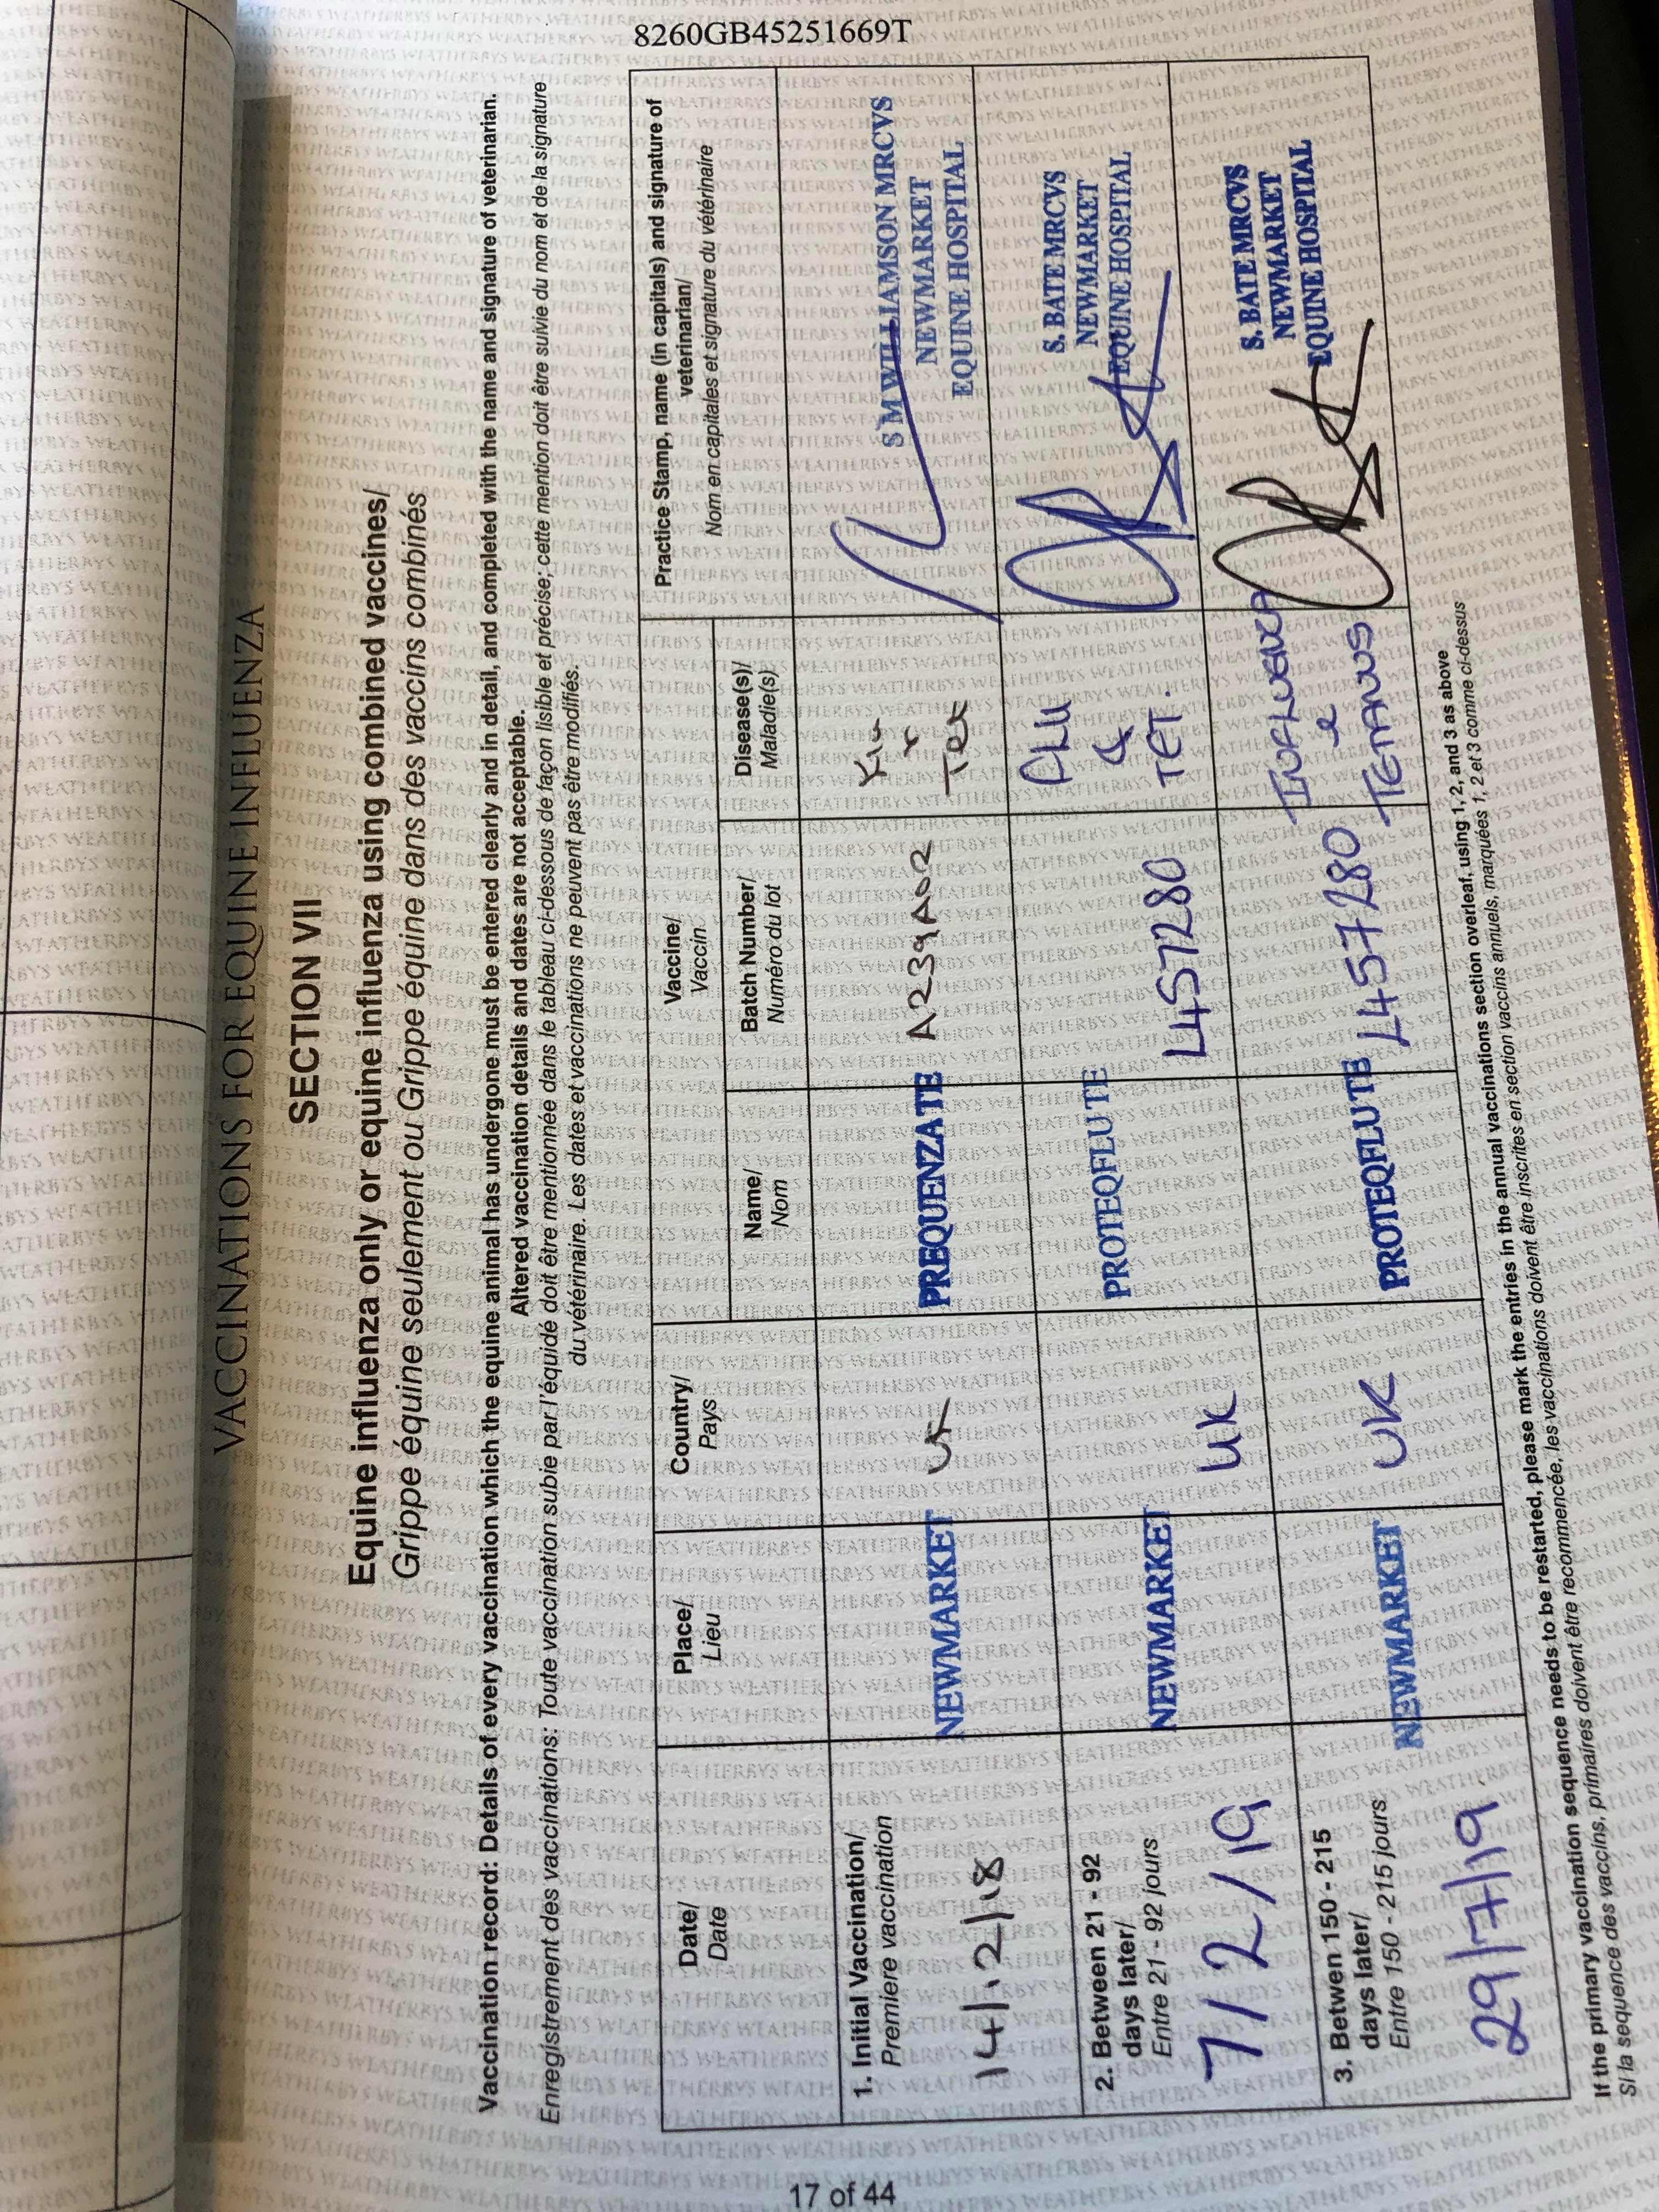 8260GB45251669T
VACCINATIONS FOR EQUINE INFLUENZA
SECTION VII
Equine influenza only or equine influenza using combined vaccines/
Grippe équine seulement ou Grippe équine dans des vaccins combinés
Vaccination record: Details of every vaccination which the equine animal has undergone must be entered clearly and in detail, and completed with the name and signature of veterinarian.
Altered vaccination details and dates are not acceptable.
Enregistrement des vaccinations: Toute vaccination subie par l'équidé doit être mentionnée dans le tableau ci-dessous de façon lisible et précise; cette mention doit être suivie du nom et de la signature
du vétérinaire. Les dates et vaccinations ne peuvent pas être modifiés.
Date/
Date
Place/
Lieu
Country/
Pays
Vaccine/
Vaccin
Name/
Nom
Batch Number/
Numéro du lot
Disease(s)/
Maladie(s)
Practice Stamp, name (in capitals) and signature of
veterinarian/
Nom en capitales et signature du vétérinaire
1. Initial Vaccination/
Premiere vaccination
14/12/18
NEWMARKET
UK
PREQUENZA TE
A239A02
Tet
S M WILLIAMSON MRCVS
NEWMARKET
EQUINE HOSPITAL
2. Between 21 - 92
days later/
Entre 21 - 92 jours
7/2/19
NEWMARKET
UK
PROTEQFLUTE
L457280
FLU
&
TET.
S. BATE MRCVS
NEWMARKET
EQUINE HOSPITAL
3. Betwen 150 - 215
days later/
Entre 150 - 215 jours
29/7/19
NEWMARKET
UK
PROTEQFLUTE
L457280
INFLUENZA
&
TETANUS
S. BATE MRCVS
NEWMARKET
EQUINE HOSPITAL
If the primary vaccination sequence needs to be restarted, please mark the entries in the annual vaccinations section overleaf, using 1, 2, and 3 as above
Si la sequence des vaccins, primaires doivent être recommencée, les vaccinations doivent être inscrites en section vaccins annuels, marquées 1, 2 et 3 comme ci-dessus
17 of 44